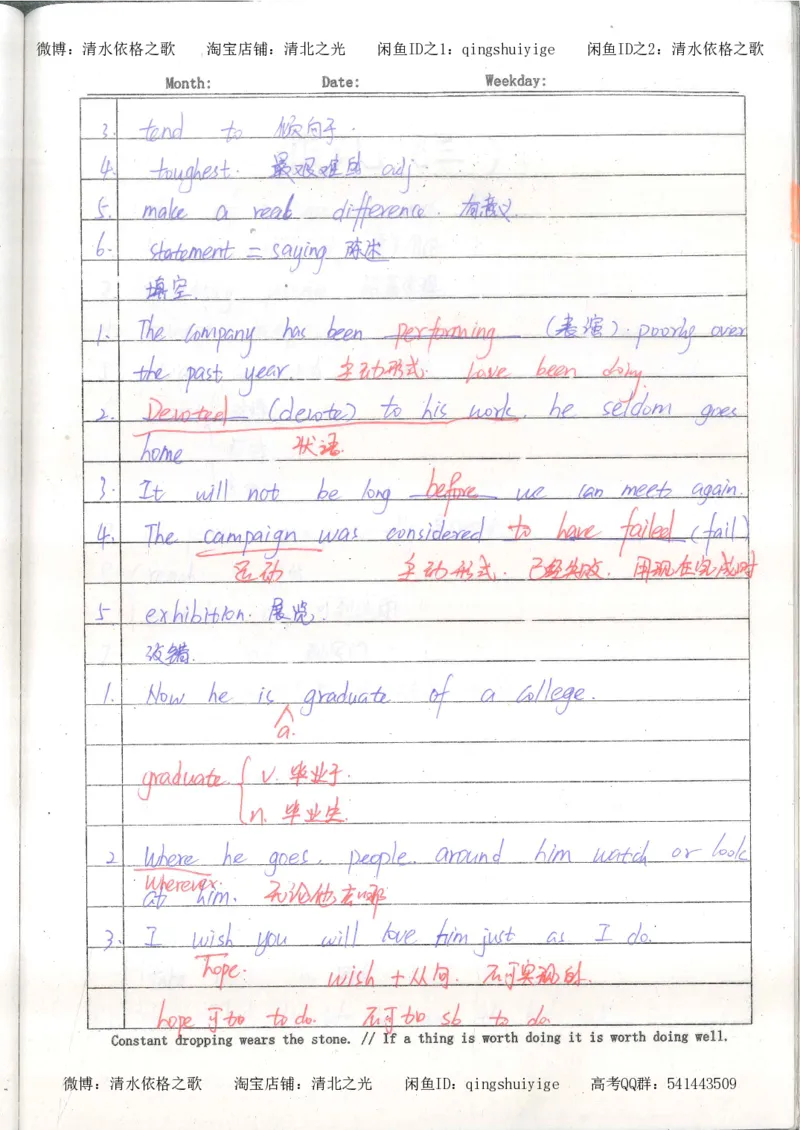 微博：清水依格之歌 淘宝店铺：清北之光 闲鱼ID之1：qingshuiyige 闲鱼ID之2：清水依格之歌
Month: Date: Weekday:
3. tend to 倾向于.
4. toughest. 最艰难的 adj.
5. make a real difference. 有意义.
6. statement = saying 陈述
填空.
1. The company has been performing (表演). poorly over
the past year. 主动形式. have been doing.
2. Devoted (devote) to his work, he seldom goes
home 状语.
3. It will not be long before we can meet again.
4. The campaign was considered to have failed (fail)
运动 主动形式. 已经失败. 用现在完成时
5 exhibition. 展览.
改错.
1. Now he is graduate of a college.
a.
graduate. { v. 毕业于.
n. 毕业生.
2 Where he goes, people around him watch or look
wherever.
at him. 无论他去哪
3. I wish you will love him just as I do.
hope. wish + 从句. 不可实现的.
hope 可加 to do. 不可加 sb to do
Constant dropping wears the stone. // If a thing is worth doing it is worth doing well.
微博：清水依格之歌 淘宝店铺：清北之光 闲鱼ID：qingshuiyige 高考QQ群：541443509